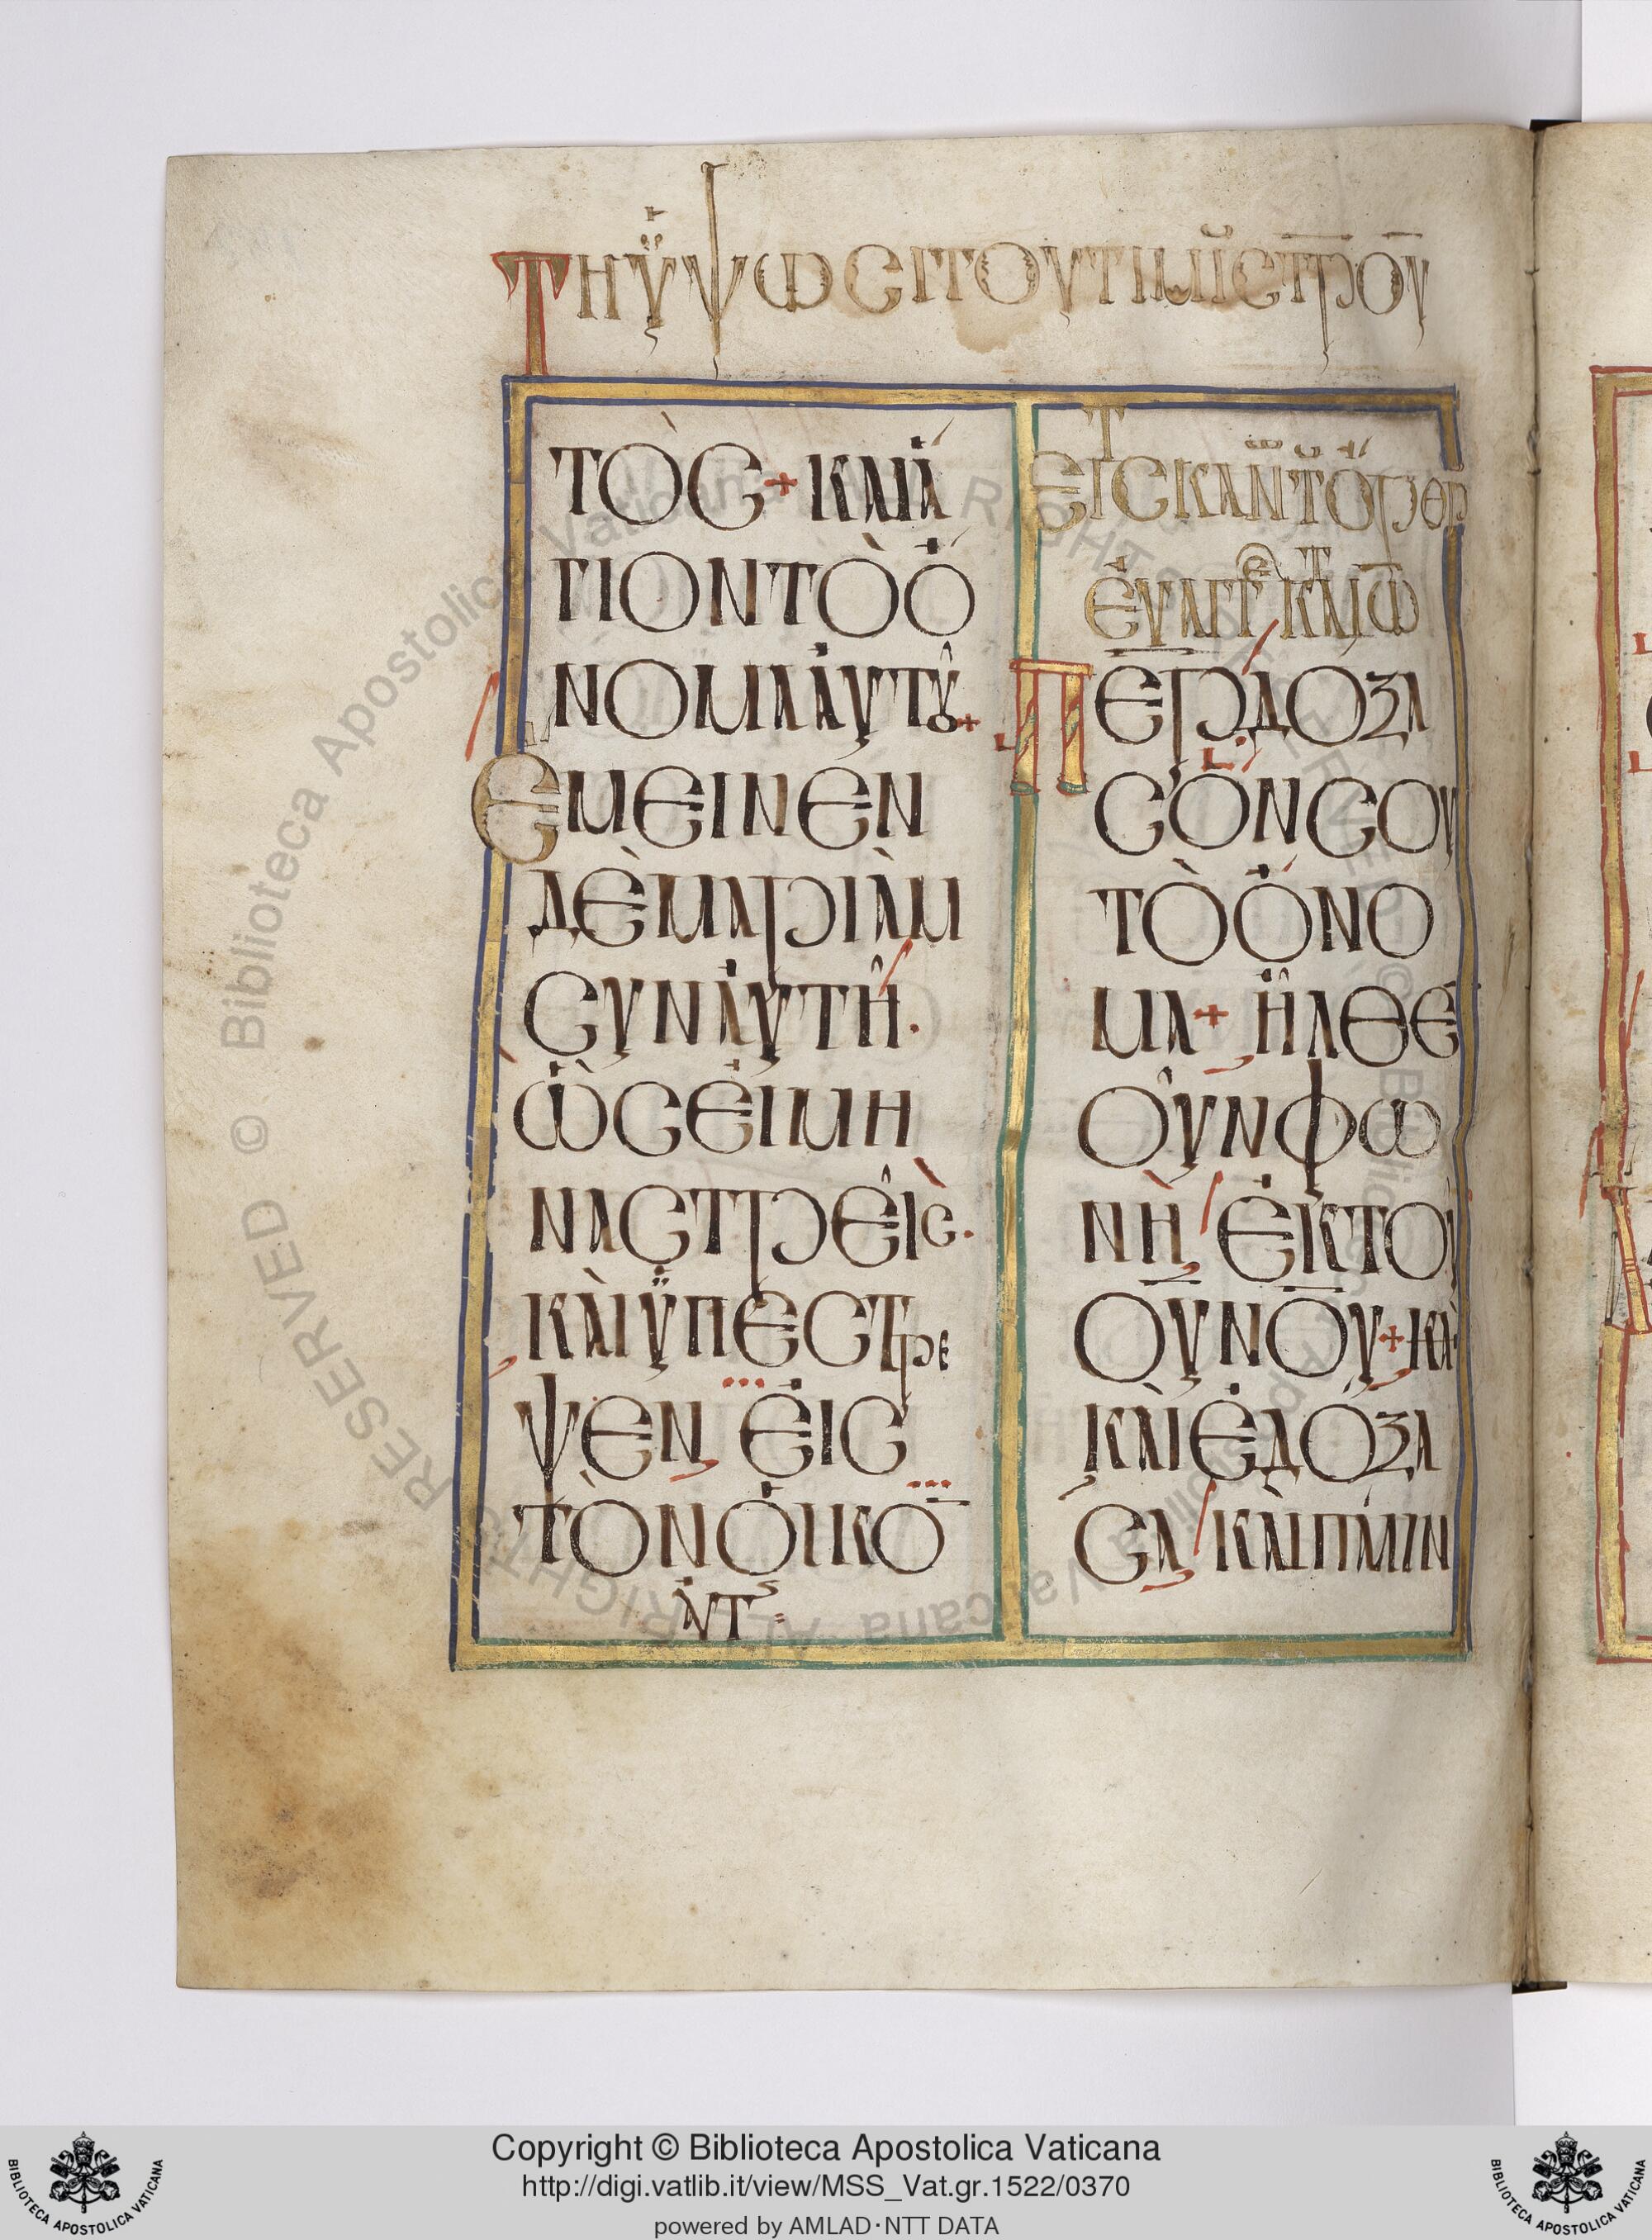 ΤΗ ΫΨΩCΕΙ ΤΟΥ ΤΙΜΙΟΥ CΤΡΟΥ
ΤΟC + ΚΑΙ Ἁ
ΓΙΟΝ ΤΟ Ὀ
ΝΟΜΑ ἈΥΤȢ +
ΕΜΕΙΝΕΝ
ΔΕ ΜΑΡΙΑΜ
CΥΝ ἈΥΤΗ.
ὩCΕΙ ΜΗ
ΝΑC ΤΡΕΙC.
ΚΑΙ ΫΠΕCΤΡΕ
ΨΕΝ ΕΙC
ΤΟΝ ΟΙΚΟ̅
ΑΥΤC
ΕΙC Τ
ΕΥΑΓΓ ΚΑΤ ΙΩ
ΠΕΡ ΔΟΞΑ
CΟΝ CΟΥ
ΤΟ ΟΝΟ
ΜΑ + ΗΛΘΕ
ΟΥΝ ΦΩ
ΝΗ ΕΚ ΤΟΥ
ΟΥΝΟΥ + ΚΑΙ
ΚΑΙ ΕΔΟΞΑ
CΑ ΚΑΙ ΠΑΛΙΝ
© Biblioteca Apostolica Vaticana ALL RIGHTS RESERVED
Copyright © Biblioteca Apostolica Vaticana
http://digi.vatlib.it/view/MSS_Vat.gr.1522/0370
powered by AMLAD·NTT DATA
BIBLIOTECA APOSTOLICA VATICANA
BIBLIOTECA APOSTOLICA VATICANA